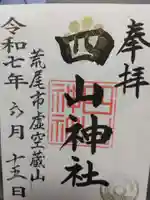 奉拝
四山神社
荒尾市虚空蔵山
令和七年六月十五日